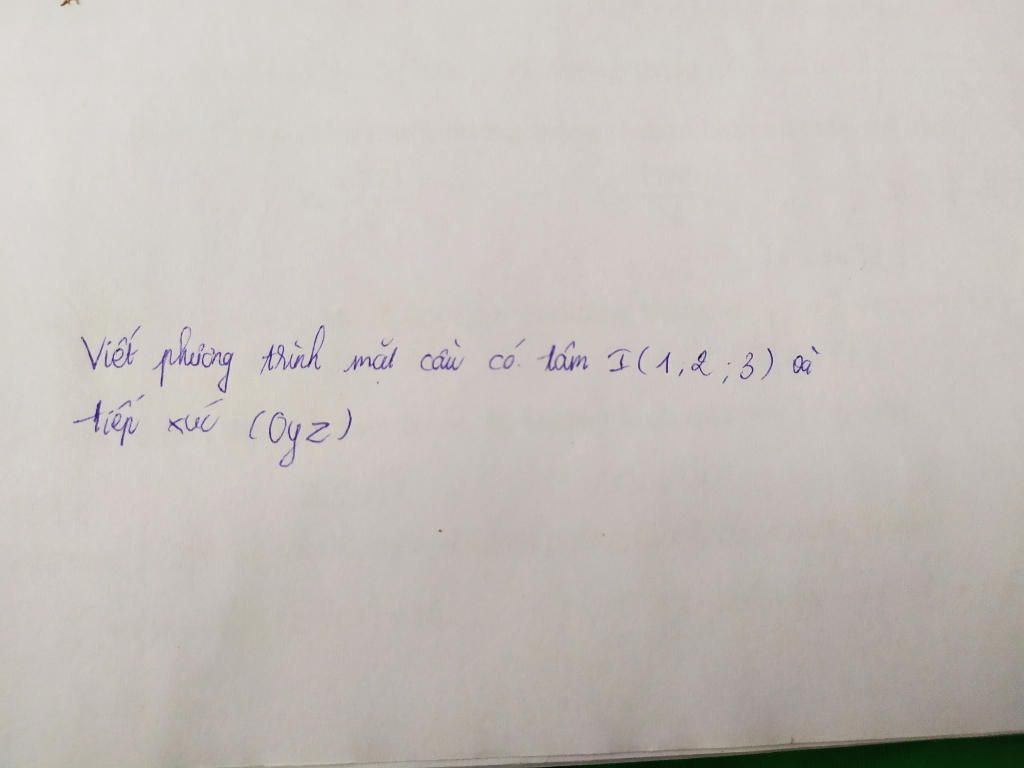 Viết phương trình mặt cầu có tâm I(1,2;3) và
tiếp xúc (Oyz)